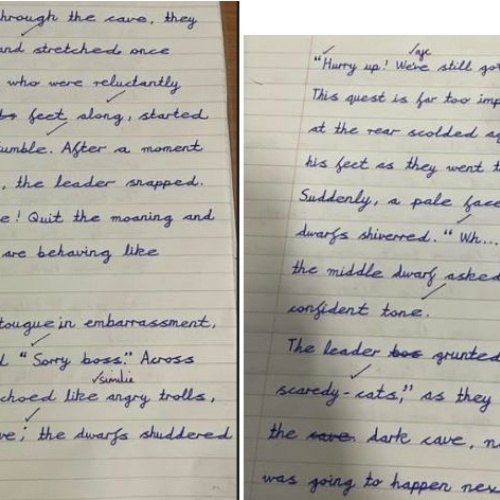 through the cave, they
and stretched once
who were reluctantly
feet along, started
umble. After a moment
, the leader snapped.
e! Quit the moaning and
are behaving like
tougue in embarrassment,
"Sorry boss." Across
similie
choed like angry trolls,
ve; the dwarfs shuddered
"Hurry up! We're still go
This quest is far too imp
at the rear scolded ag
his feet as they went t
Suddenly, a pale face
dwarfs shiverred. "Wh...
the middle dwarf asked
confident tone.
The leader grunted
scaredy-cats," as they
the cave dark cave, n
was going to happen nex